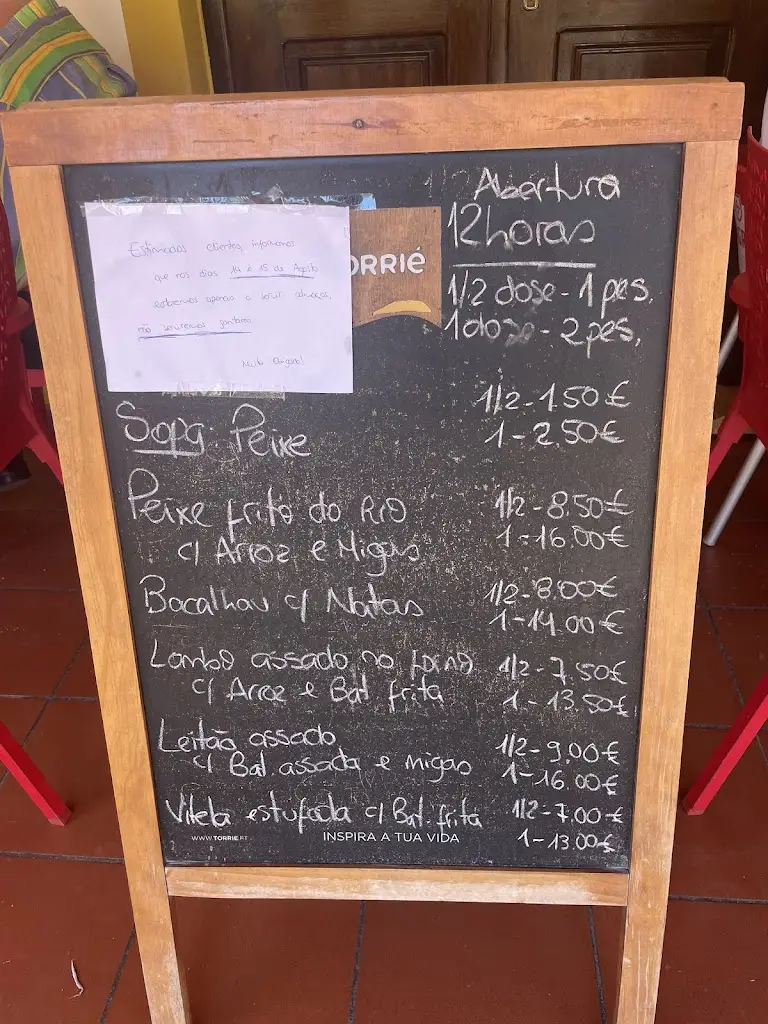 Abertura
12 horas
1/2 dose - 1 pes.
1 dose - 2 pes.
Estimados clientes, informamos
que nos dias 14 e 15 de Agosto
estaremos apenas a servir almoços,
não serviremos jantares
Muito Obrigado!
ORRIÉ
Sopa Peixe
1/2 - 1.50€
1 - 2.50€
Peixe frito do Rio
c/ Arroz e Migas
1/2 - 8.50€
1 - 16.00€
Bacalhau c/ Natas
1/2 - 8.00€
1 - 14.00€
Lombo assado no forno
c/ Arroz e Bat. frita
1/2 - 7.50€
1 - 13.50€
Leitão assado
c/ Bat. assada e migas
1/2 - 9.00€
1 - 16.00€
Vitela estufada c/ Bat. frita
1/2 - 7.00€
1 - 13.00€
WWW.TORRIE.PT
INSPIRA A TUA VIDA